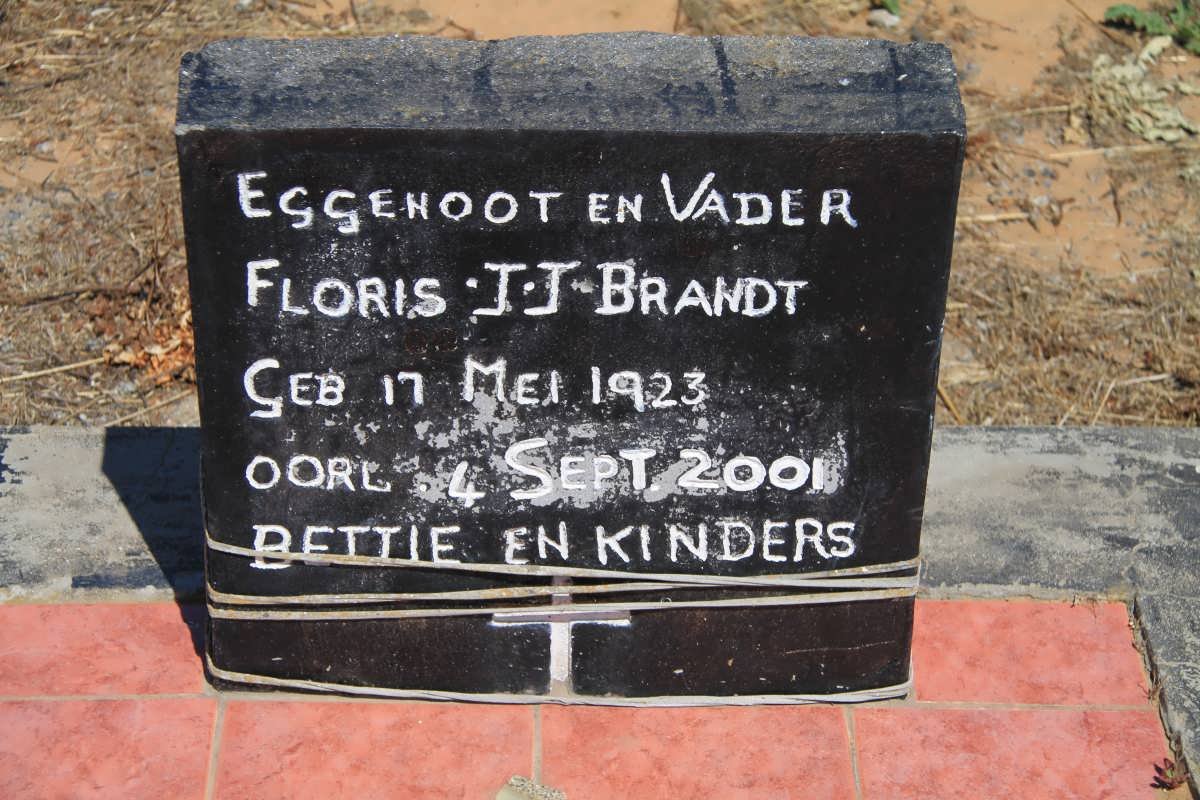 EGGENOOT EN VADER
FLORIS ·J·J· BRANDT
GEB 17 MEI 1923
OORL. 4 SEPT. 2001
BETTIE EN KINDERS